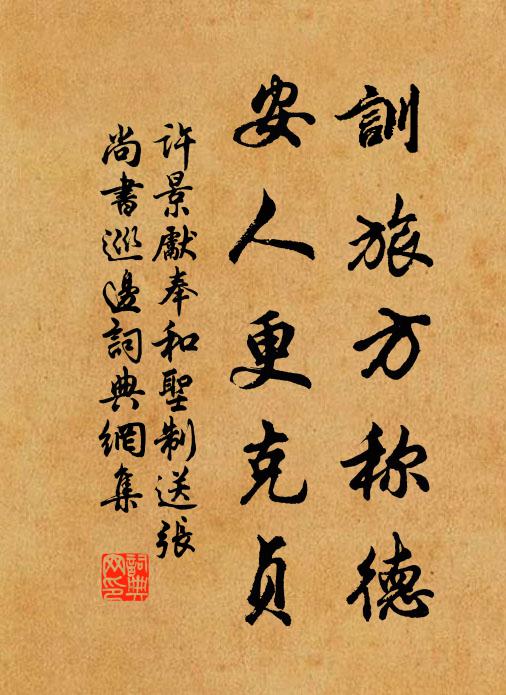 訓旅方称德
安人更克貞
许景獻奉和聖制送張
尚書巡邊詞典網集
詞典
网印